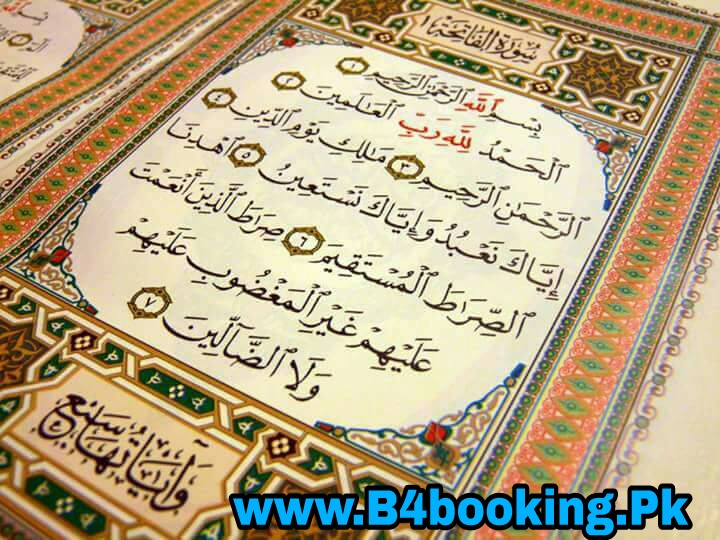 سُورَةُ الفَاتِحَة ١
بِسْمِ ٱللَّهِ ٱلرَّحْمَٰنِ ٱلرَّحِيمِ ١
ٱلْحَمْدُ لِلَّهِ رَبِّ ٱلْعَالَمِينَ ٢
ٱلرَّحْمَٰنِ ٱلرَّحِيمِ ٣ مَالِكِ يَوْمِ ٱلدِّينِ ٤
إِيَّاكَ نَعْبُدُ وَإِيَّاكَ نَسْتَعِينُ ٥ ٱهْدِنَا
ٱلصِّرَاطَ ٱلْمُسْتَقِيمَ ٦ صِرَاطَ ٱلَّذِينَ أَنْعَمْتَ
عَلَيْهِمْ غَيْرِ ٱلْمَغْضُوبِ عَلَيْهِمْ
وَلَا ٱلضَّآلِّينَ ٧
وَآيَاتُهَا سَبْعٌ
www.B4booking.Pk